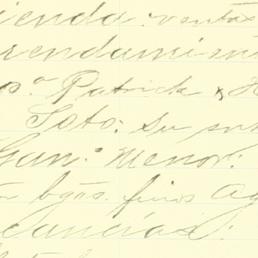 ienda: ventas
rendamien
Patrick y
Soto: su
Gan.º Menor:
bgas. finos Ag
cancías: